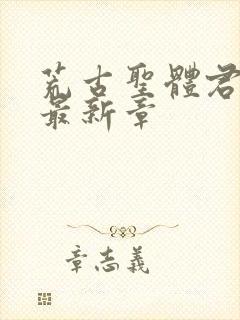 荒古聖體君
最新章
章志義